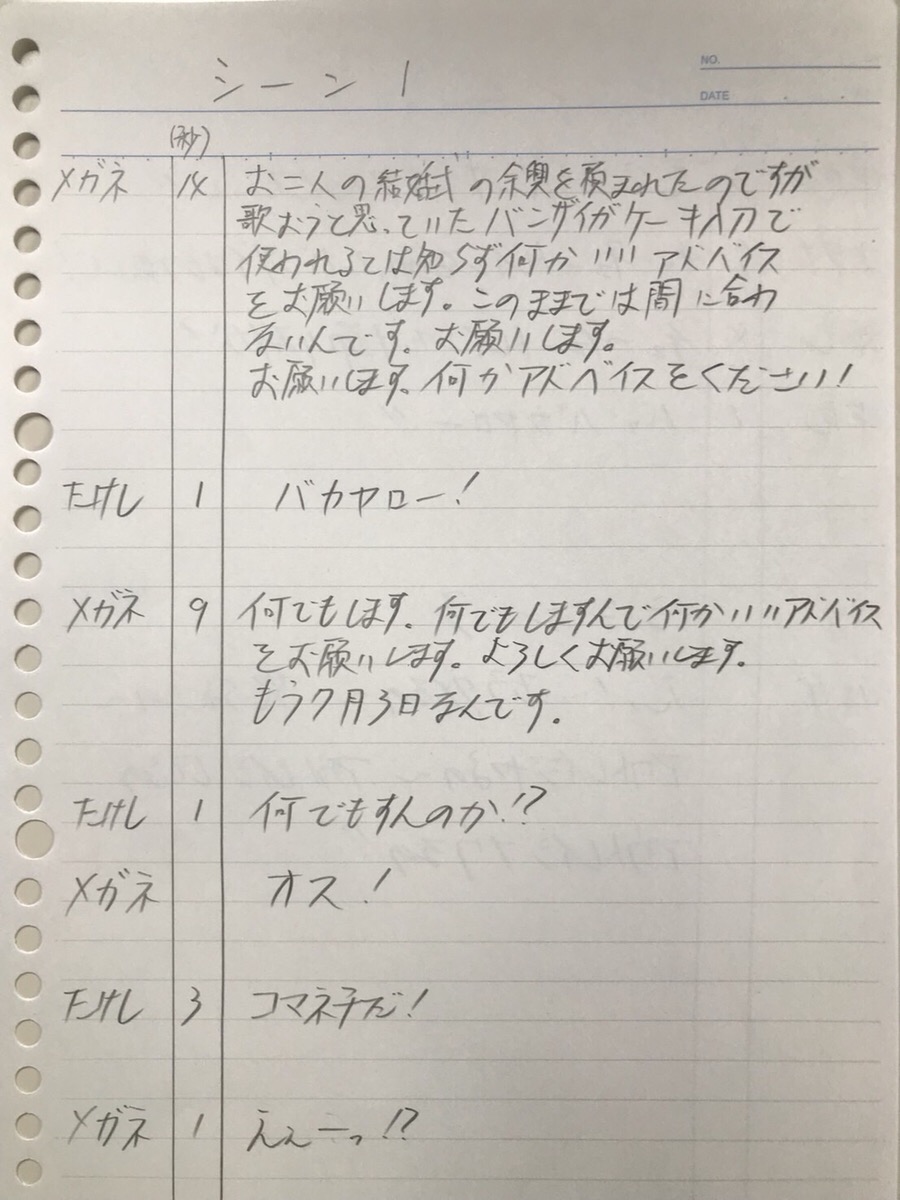 シーン1
NO.
DATE
(秒)
メガネ 14 お二人の結婚式の余興を頼まれたのですが
歌おうと思っていたバンザイがケーキ入刀で
使われるとは知らず何かいいアドバイス
をお願いします。このままでは間に合わ
ないんです。お願いします。
お願いします。何かアドバイスをください!
たけし 1 バカヤロー!
メガネ 9 何でもします。何でもしますんで何かいいアドバイス
をお願いします。よろしくお願いします。
もう7月3日なんです。
たけし 1 何でもすんのか!?
メガネ オス!
たけし 3 コマネチだ!
メガネ 1 えぇーっ!?